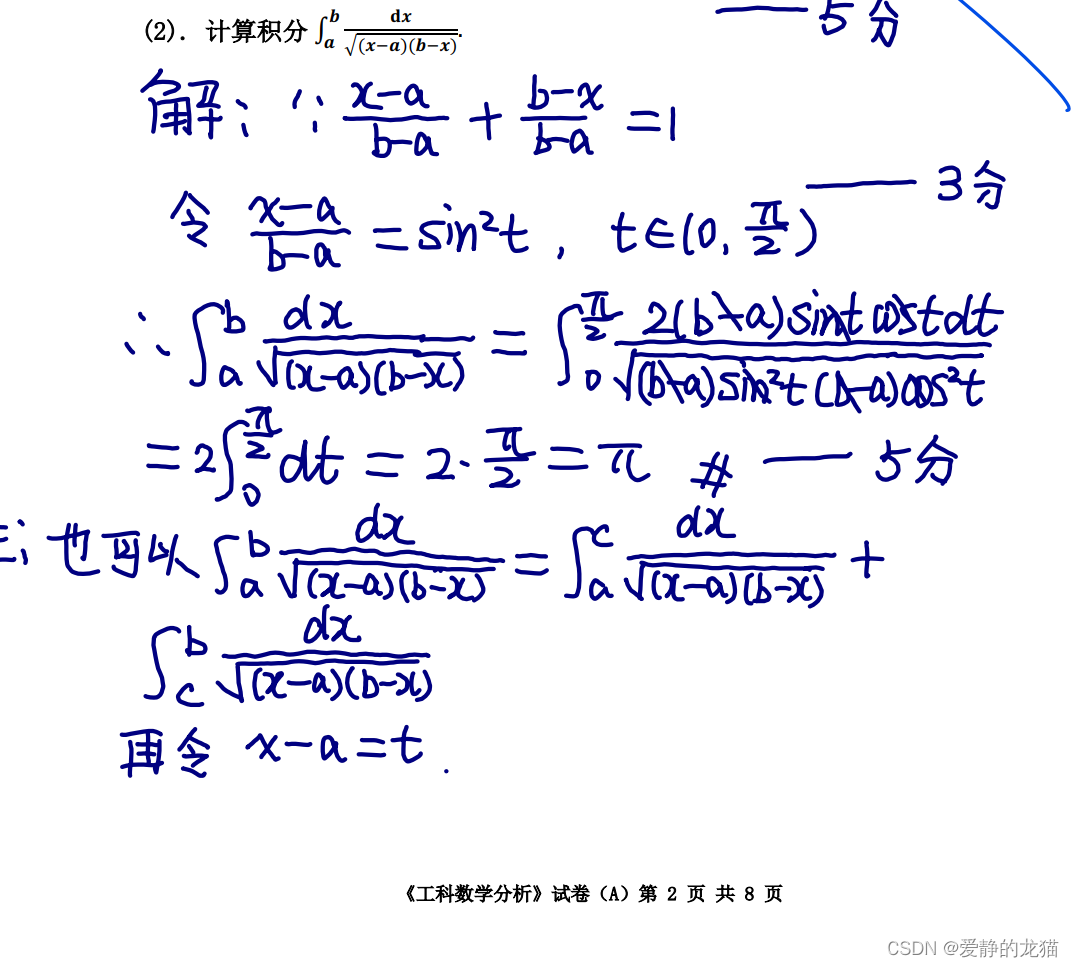 —— 5分
(2). 计算积分 ∫_a^b dx/√((x−a)(b−x)).
解: ∵ (x−a)/(b−a) + (b−x)/(b−a) = 1
—— 3分
令 (x−a)/(b−a) = sin²t, t∈(0, π/2)
∴ ∫_a^b dx/√((x−a)(b−x)) = ∫_0^(π/2) 2(b−a)sint cost dt/√((b−a)sin²t (b−a)cos²t)
= 2∫_0^(π/2) dt = 2·π/2 = π # —— 5分
: 也可以 ∫_a^b dx/√((x−a)(b−x)) = ∫_a^c dx/√((x−a)(b−x)) +
∫_c^b dx/√((x−a)(b−x))
再令 x−a=t.
《工科数学分析》试卷（A）第 2 页 共 8 页
CSDN @爱静的龙猫